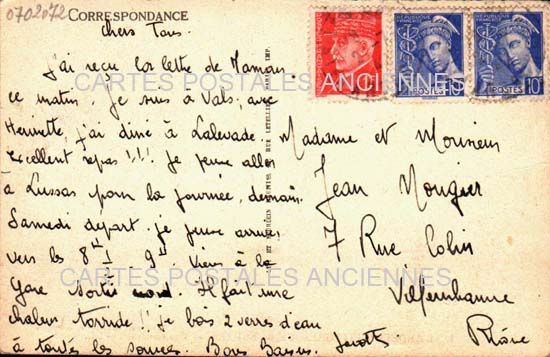 0702072
CORRESPONDANCE
Chers Tous.
J'ai reçu la lettre de Maman
ce matin. Je suis à Vals, avec
Henriette, j'ai diné à Lalevade.
Excellent repas !!! Je pense aller
à Lussas pour la journée, demain.
Samedi départ. je pense arriver
vers les 8H½ 9H. Viens à la
Gare sortie nord. Il fait une
chaleur torride !! je bois 2 verres d'eau
à toutes les sources. Bons Baisers.
Madame et Monsieur
Jean Nougier
7 Rue Colin
Villeurbanne
Rhône
RÉPUBLIQUE FRANÇAISE
POSTES 10c
RÉPUBLIQUE FRANÇAISE
POSTES 10c
CARTES POSTALES ANCIENNES
CARTES POSTALES ANCIENNES